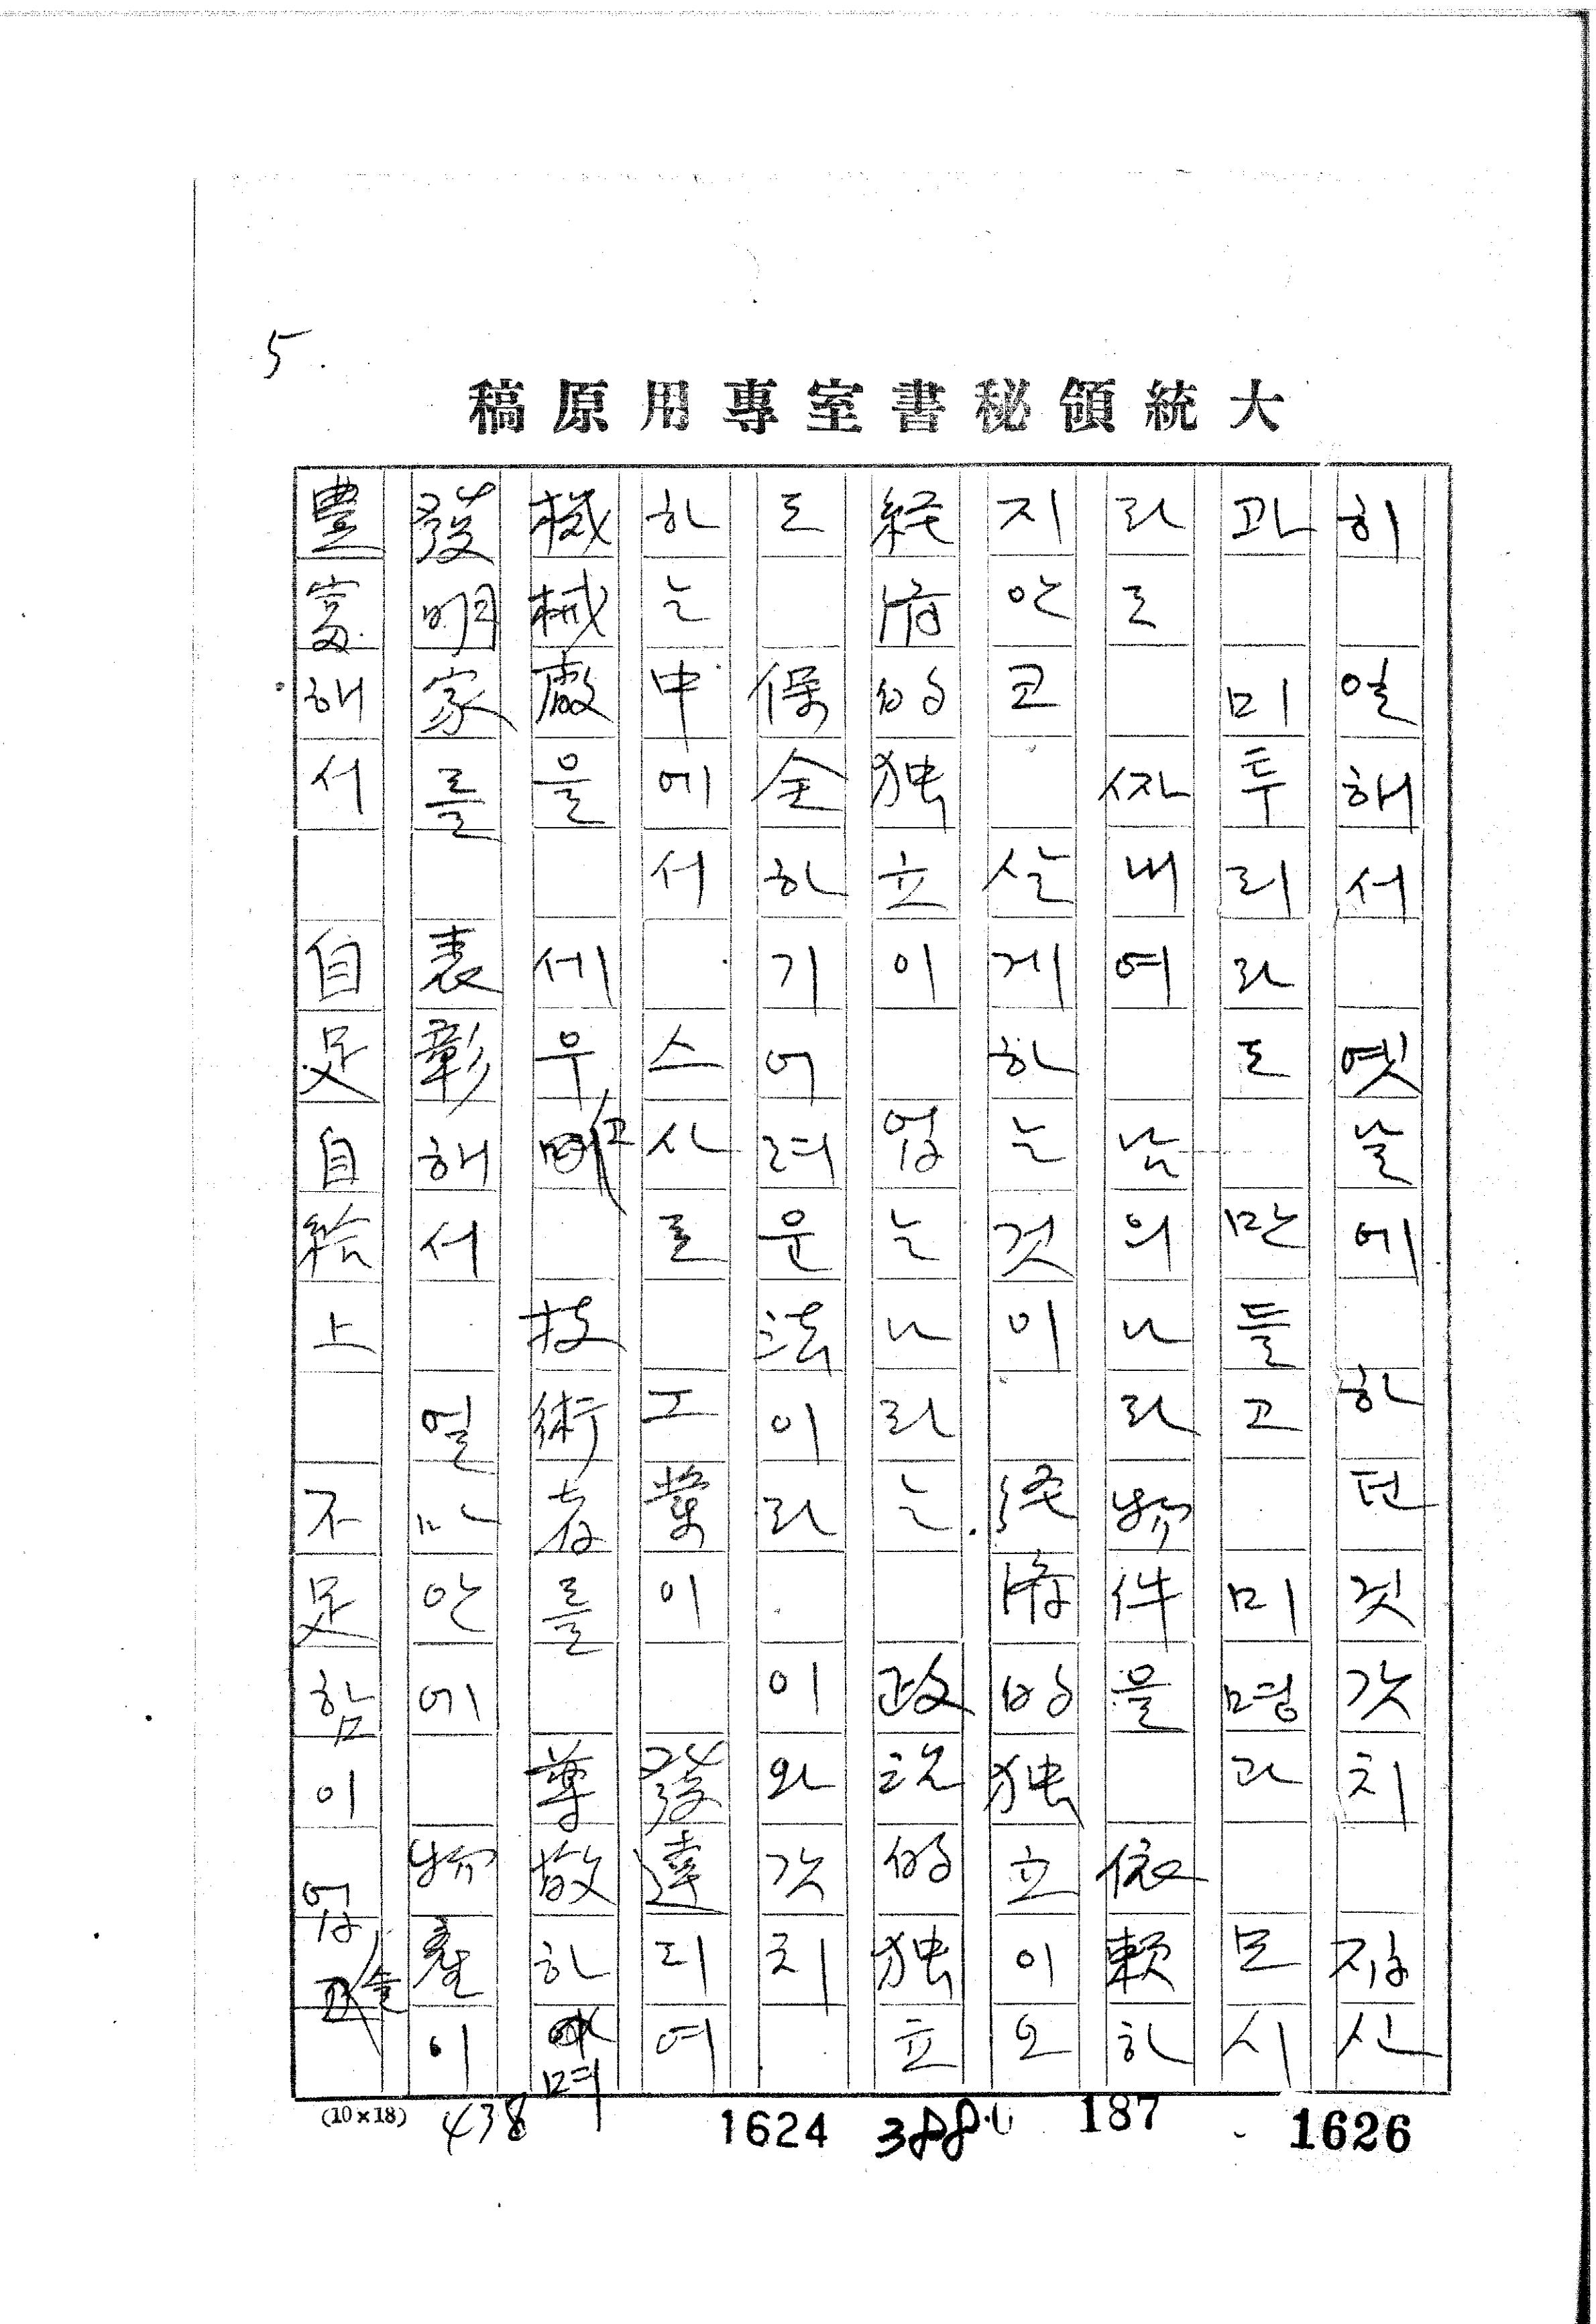 5.
大統領秘書室專用原稿
히 일해서 옛날에 하던것갓치 집신
과 미투리라도 만들고 미명과 모시
라도 짜내여 남의나라物件을 依賴하
지안코 살게하는것이 経済的独立이오
経済的独立이 업는나라는 政治的独立
도 保全하기어려운法이라 이와갓치
하는中에서 스사로 工業이 發達되여
機械廠을 세우고 技術者를 尊敬하며
發明家를 表彰해서 얼마안에 物産이
豊富해서 自足自給上 不足함이업슬
(10×18)
438
1624
388
187
1626